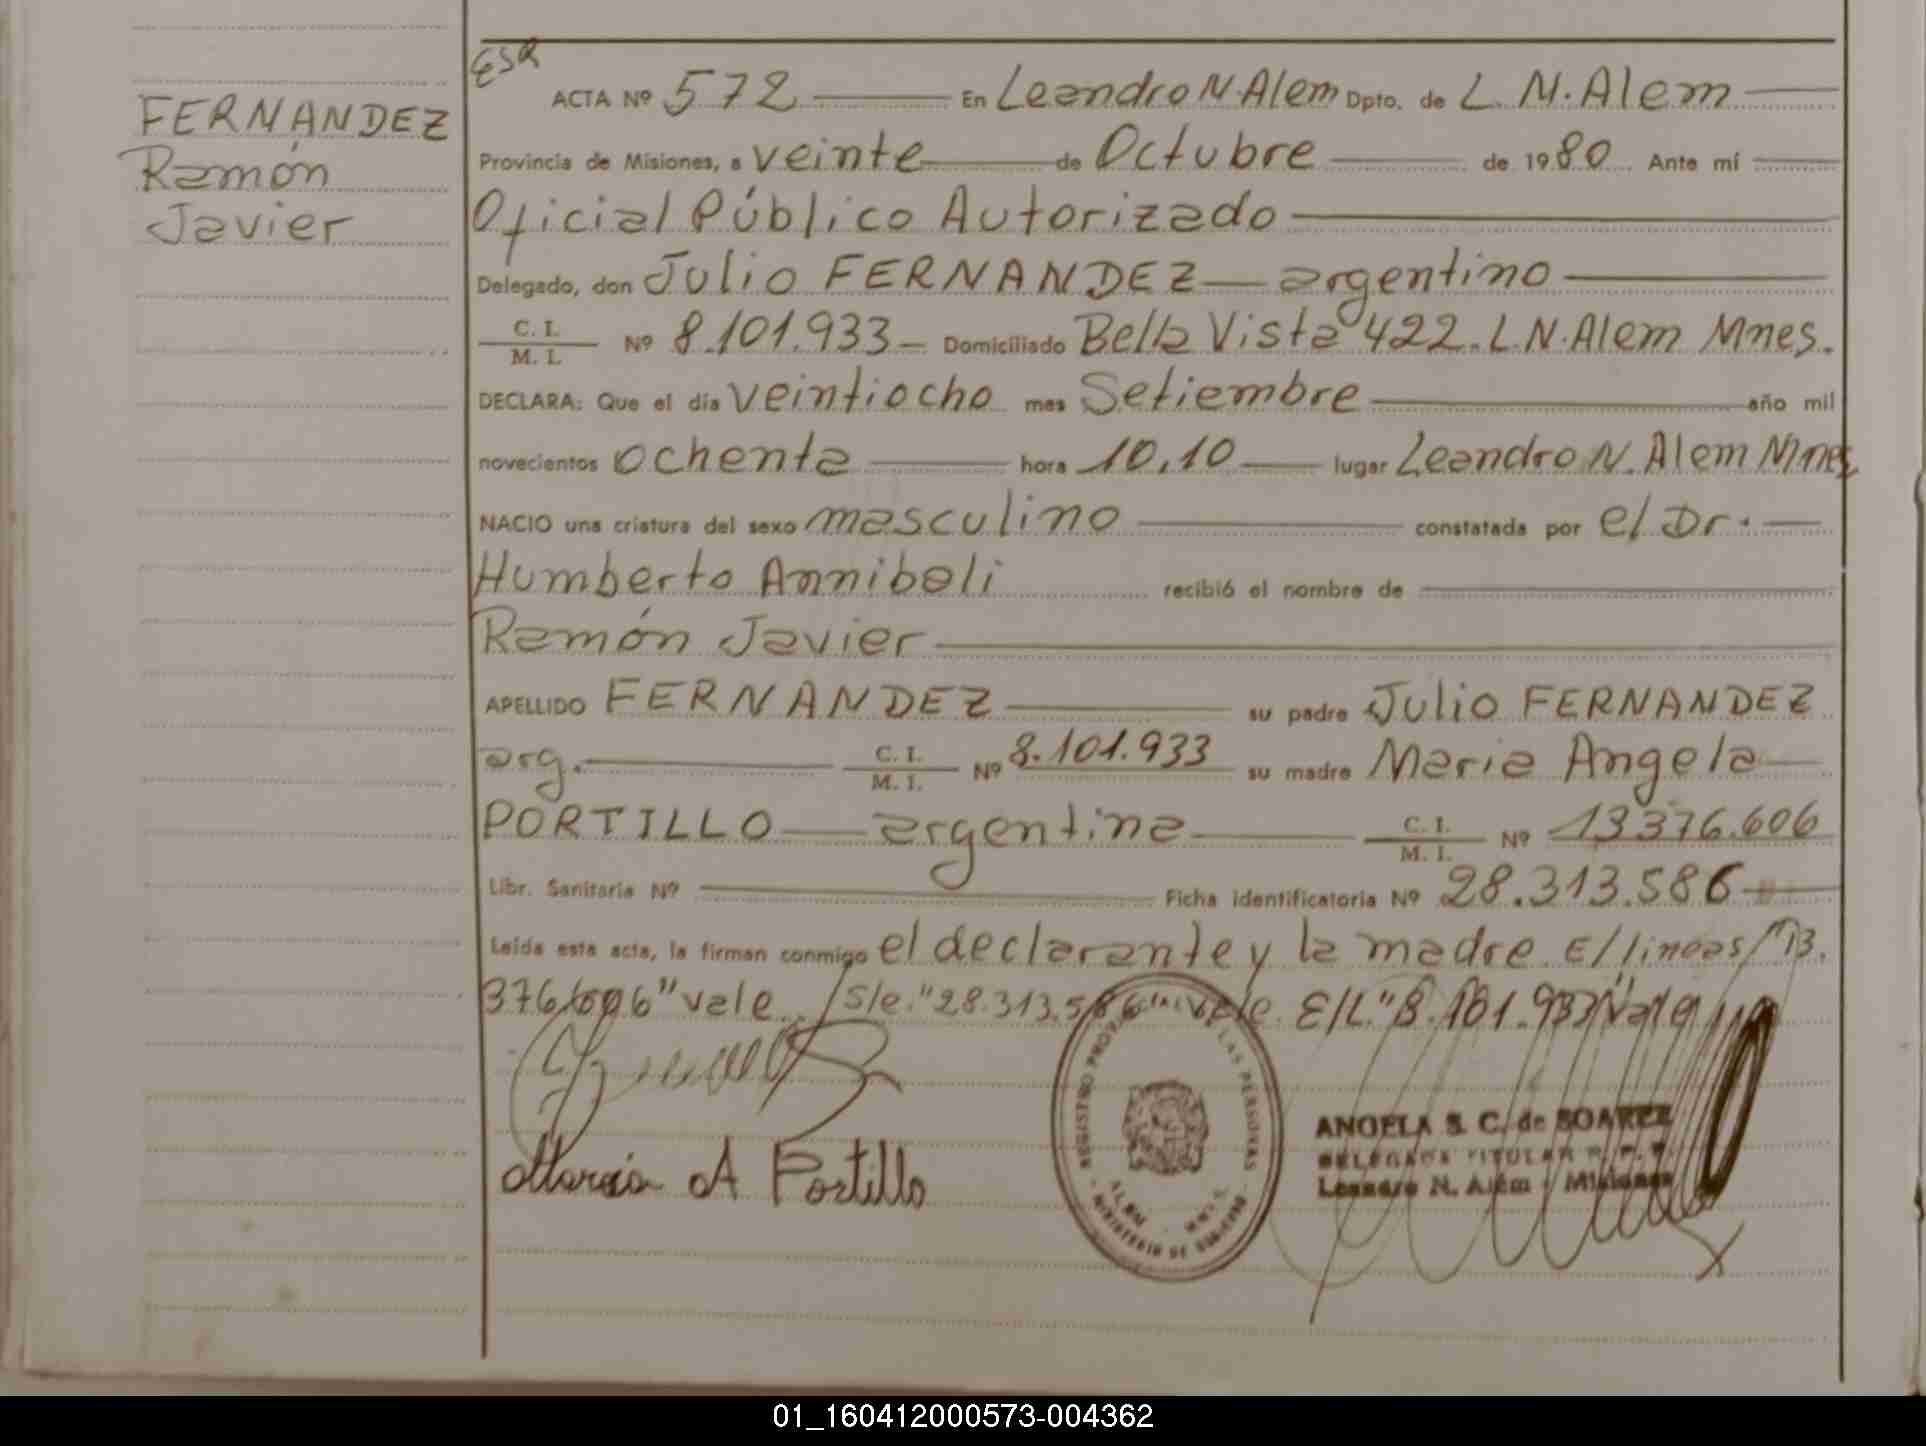 ESQ
FERNÁNDEZ
Ramón
Javier
ACTA Nº 572 En Leandro N. Alem Dpto. de L. N. Alem
Provincia de Misiones, a veinte de Octubre de 1980 Ante mí
Oficial Público Autorizado
Delegado, don Julio FERNANDEZ — argentino
C. I. / M. I. Nº 8.101.933 — Domiciliado Bella Vista 422. L.N. Alem Mnes.
DECLARA: Que el día veintiocho mes Setiembre año mil
novecientos ochenta hora 10,10 lugar Leandro N. Alem Mnes
NACIO una criatura del sexo masculino constatada por el Dr.
Humberto Anniboli recibió el nombre de
Ramón Javier
APELLIDO FERNANDEZ su padre Julio FERNANDEZ
arg. C. I. / M. I. Nº 8.101.933 su madre Maria Angela
PORTILLO — argentina C. I. / M. I. Nº 13376.606
Libr. Sanitaria Nº Ficha identificatoria Nº 28.313.586
Leída esta acta, la firman conmigo el declarante y la madre. E/lineas/"13.
376.606" vale. /S/e. "28.313.586" vale. E/L. "8.101.933" Vale
Maria A Portillo
REGISTRO PROV. DE LAS PERSONAS
ALEM - MNES.
MINISTERIO DE GOBIERNO
ANGELA S. C. de SOAREZ
DELEGADA TITULAR R. P. P.
Leandro N. Alem - Misiones
01_160412000573-004362